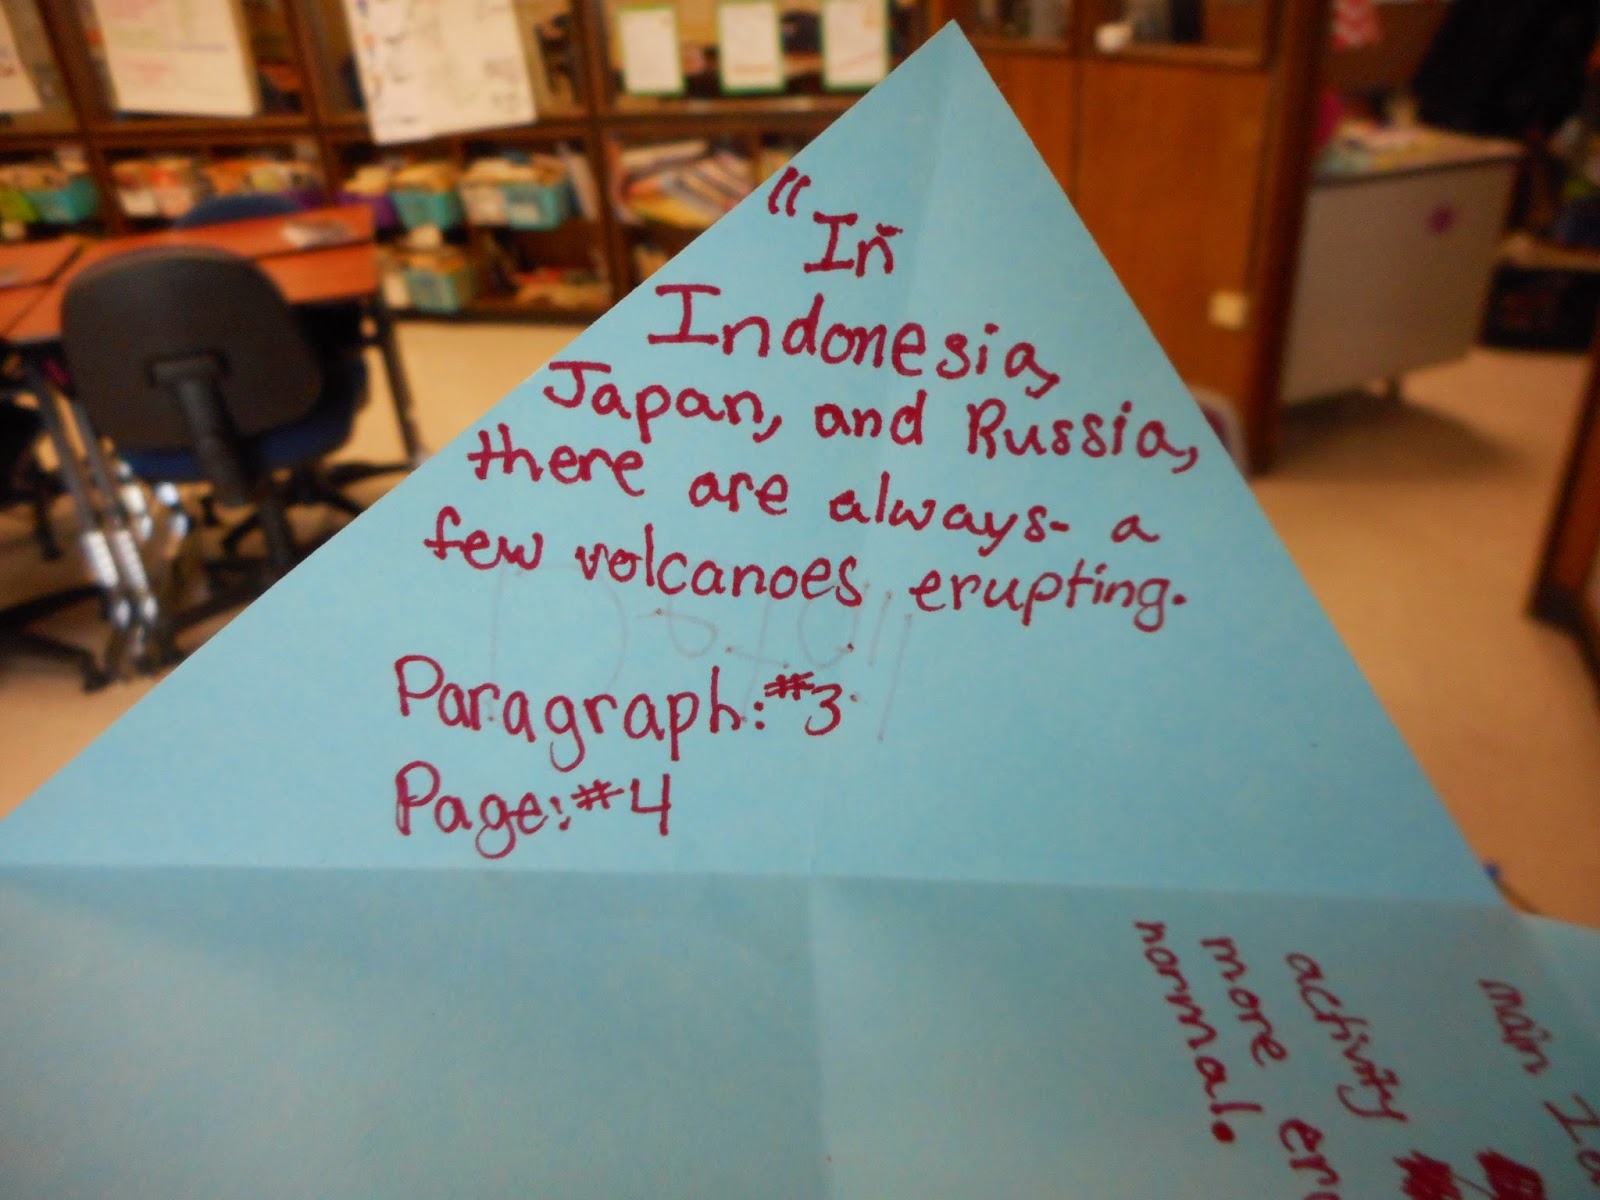 "In
Indonesia,
Japan, and Russia,
there are always a
few volcanoes erupting.
Detail
Paragraph: #3
Page: #4
main
activity
more
normal.